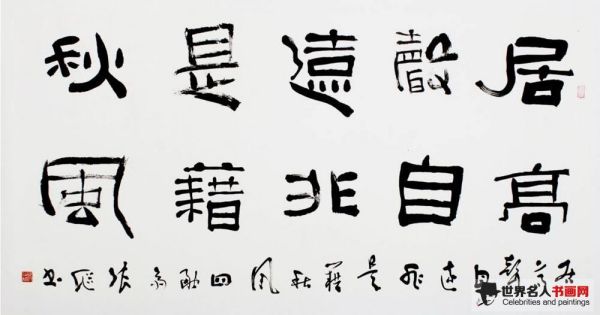 居高
聲自
遠非
是藉
秋風
居高聲自遠非是藉秋風四融齋張繼書
世界名人书画网
Celebrities and paintings